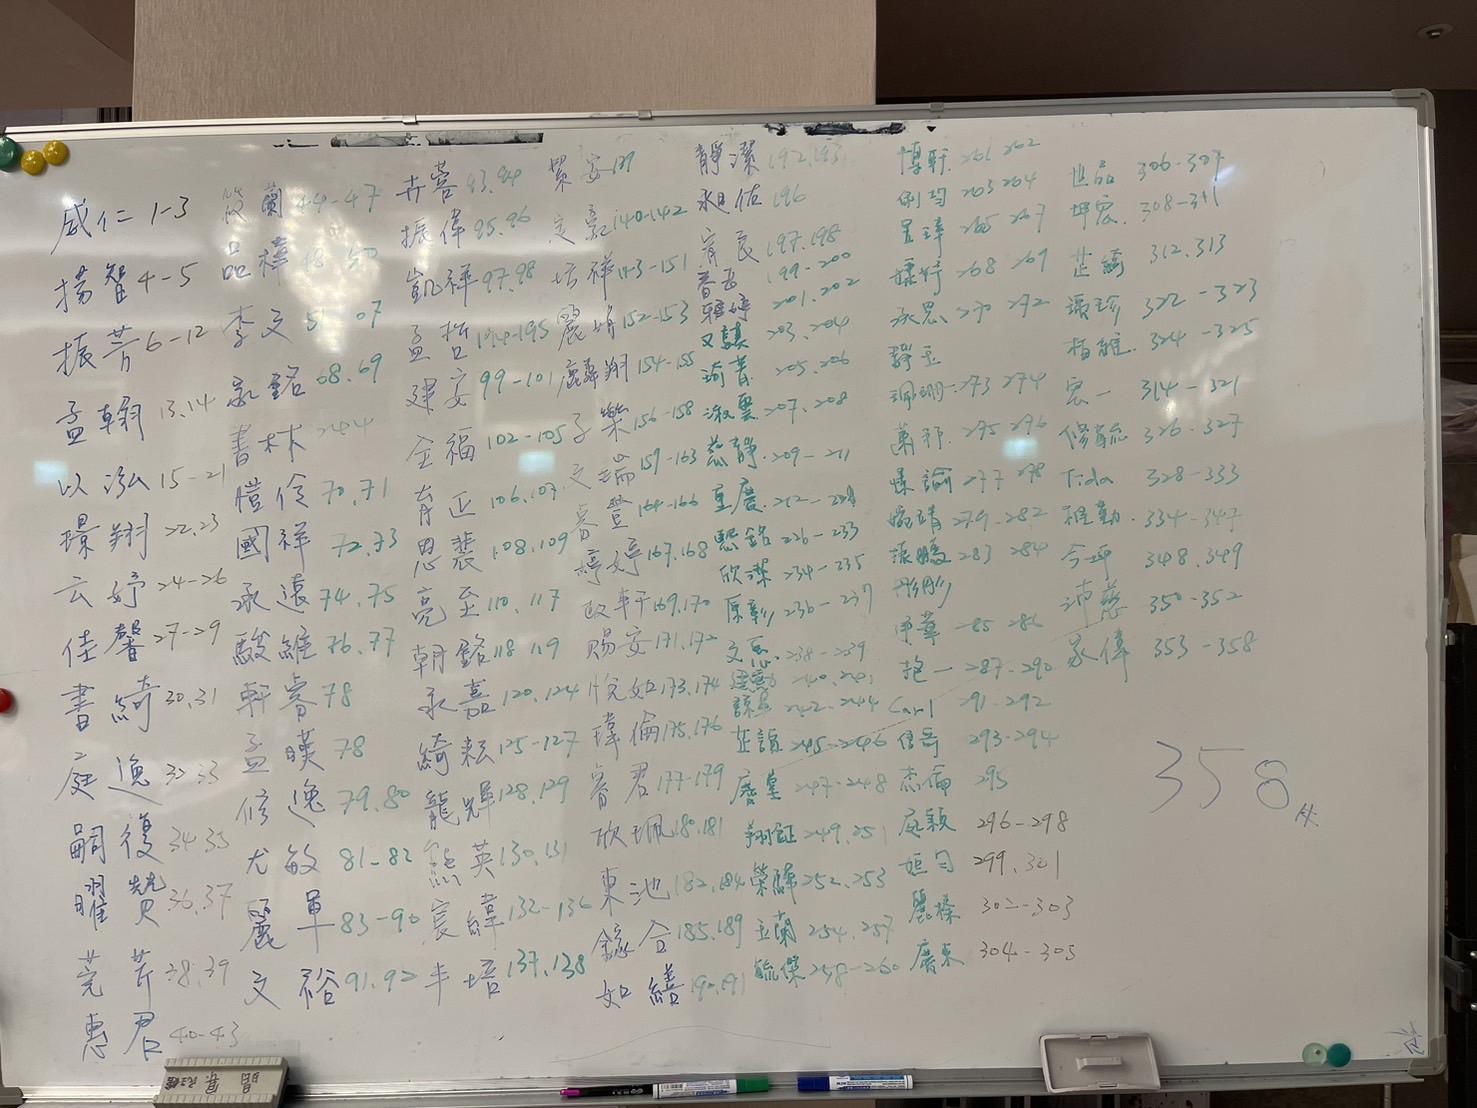 威仁 1-3
揚智 4-5
振芳 6-12
孟翰 13.14
以泓 15-21
璟翔 22.23
云妤 24-26
佳馨 27-29
書綺 30.31
庭逸 32.33
嗣復 34.35
曜贊 36.37
莞芹 38.39
惠君 40-43
筱蘭 44-47
品樺 48-50
李文 51-67
家銘 68.69
書林 244
愷伶 70.71
國祥 72.73
承遠 74.75
駿維 76.77
軒睿 78
孟暵 78
修逸 79.80
尤敏 81-82
麗單 83-90
文裕 91.92
卉蓉 93.94
振偉 95.96
凱祥 97.98
孟哲 194-195
建安 99-101
全福 102-105
育正 106.107
思裴 108.109
亮至 110.117
朝銘 118.119
永嘉 120.124
綺耘 125-127
龍輝 128.129
熊英 130.131
宸緯 132-136
丰培 137.138
絜安 139
定勳 140-142
培祥 143-151
麗娟 152-153
麟翔 154-155
子樂 156-158
文瑞 159-163
睿登 164-166
婷婷 167.168
政軒 169.170
賜安 171.172
悅如 173.174
瑋倫 175.176
宥君 177-179
欣珮 180.181
東池 182.184
錄合 185.189
如繕 190.191
靜潔 192.193
昶佑 196
宥良 197.198
199-200
雅婷 201.202
又謨 203.204
瑜菁 205.206
淑雲 207.208
慈靜 209-211
重慶
熙銘 226-233
欣潔 234-235
原彰 236-237
238-239
建勳 240.241
242-244
芷誼 245-246
247-248
翔鉦 249.251
榮繹 252.253
玉蘭 254.257
毓傑 258-260
博軒 261 262
俐均 263 264
昱瑋 265 267
268 269
承恩 270 272
靜玉
珮珊 273 274
275 296
277 278
婉靖 279-282
振鵬 283 284
彤彤
淨華 285 286
抱一 287-290
Carl 291-292
信哥 293-294
杰倫 295
庭穎 296-298
姮勻 299.301
麗榛 302-303
廣東 304-305
世品 306-307
坤宏 308-311
芷綺 312.313
322-323
324-325
宏一 314-321
修毓 326-327
Tida 328-333
雅勤 334-347
今坪 348.349
沛慈 350-352
家偉 353-358
358